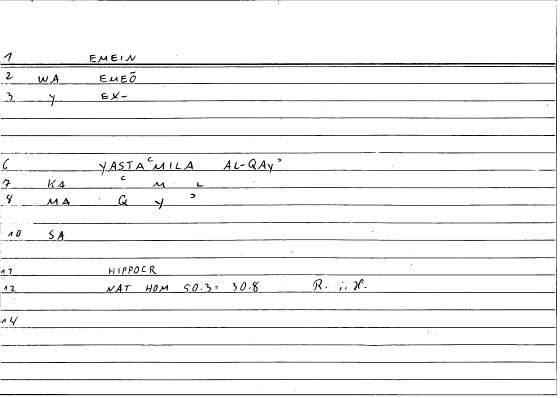 1 EMEIN
2 WA EMEŌ
3 Y EX-
6 YASTAʿMILA AL-QAYʾ
7 KA ʿ M L
8 MA Q Y ʾ
10 SA
11 HIPPOCR
12 NAT HOM 50.3 = 30.8 R. ;, H.
14